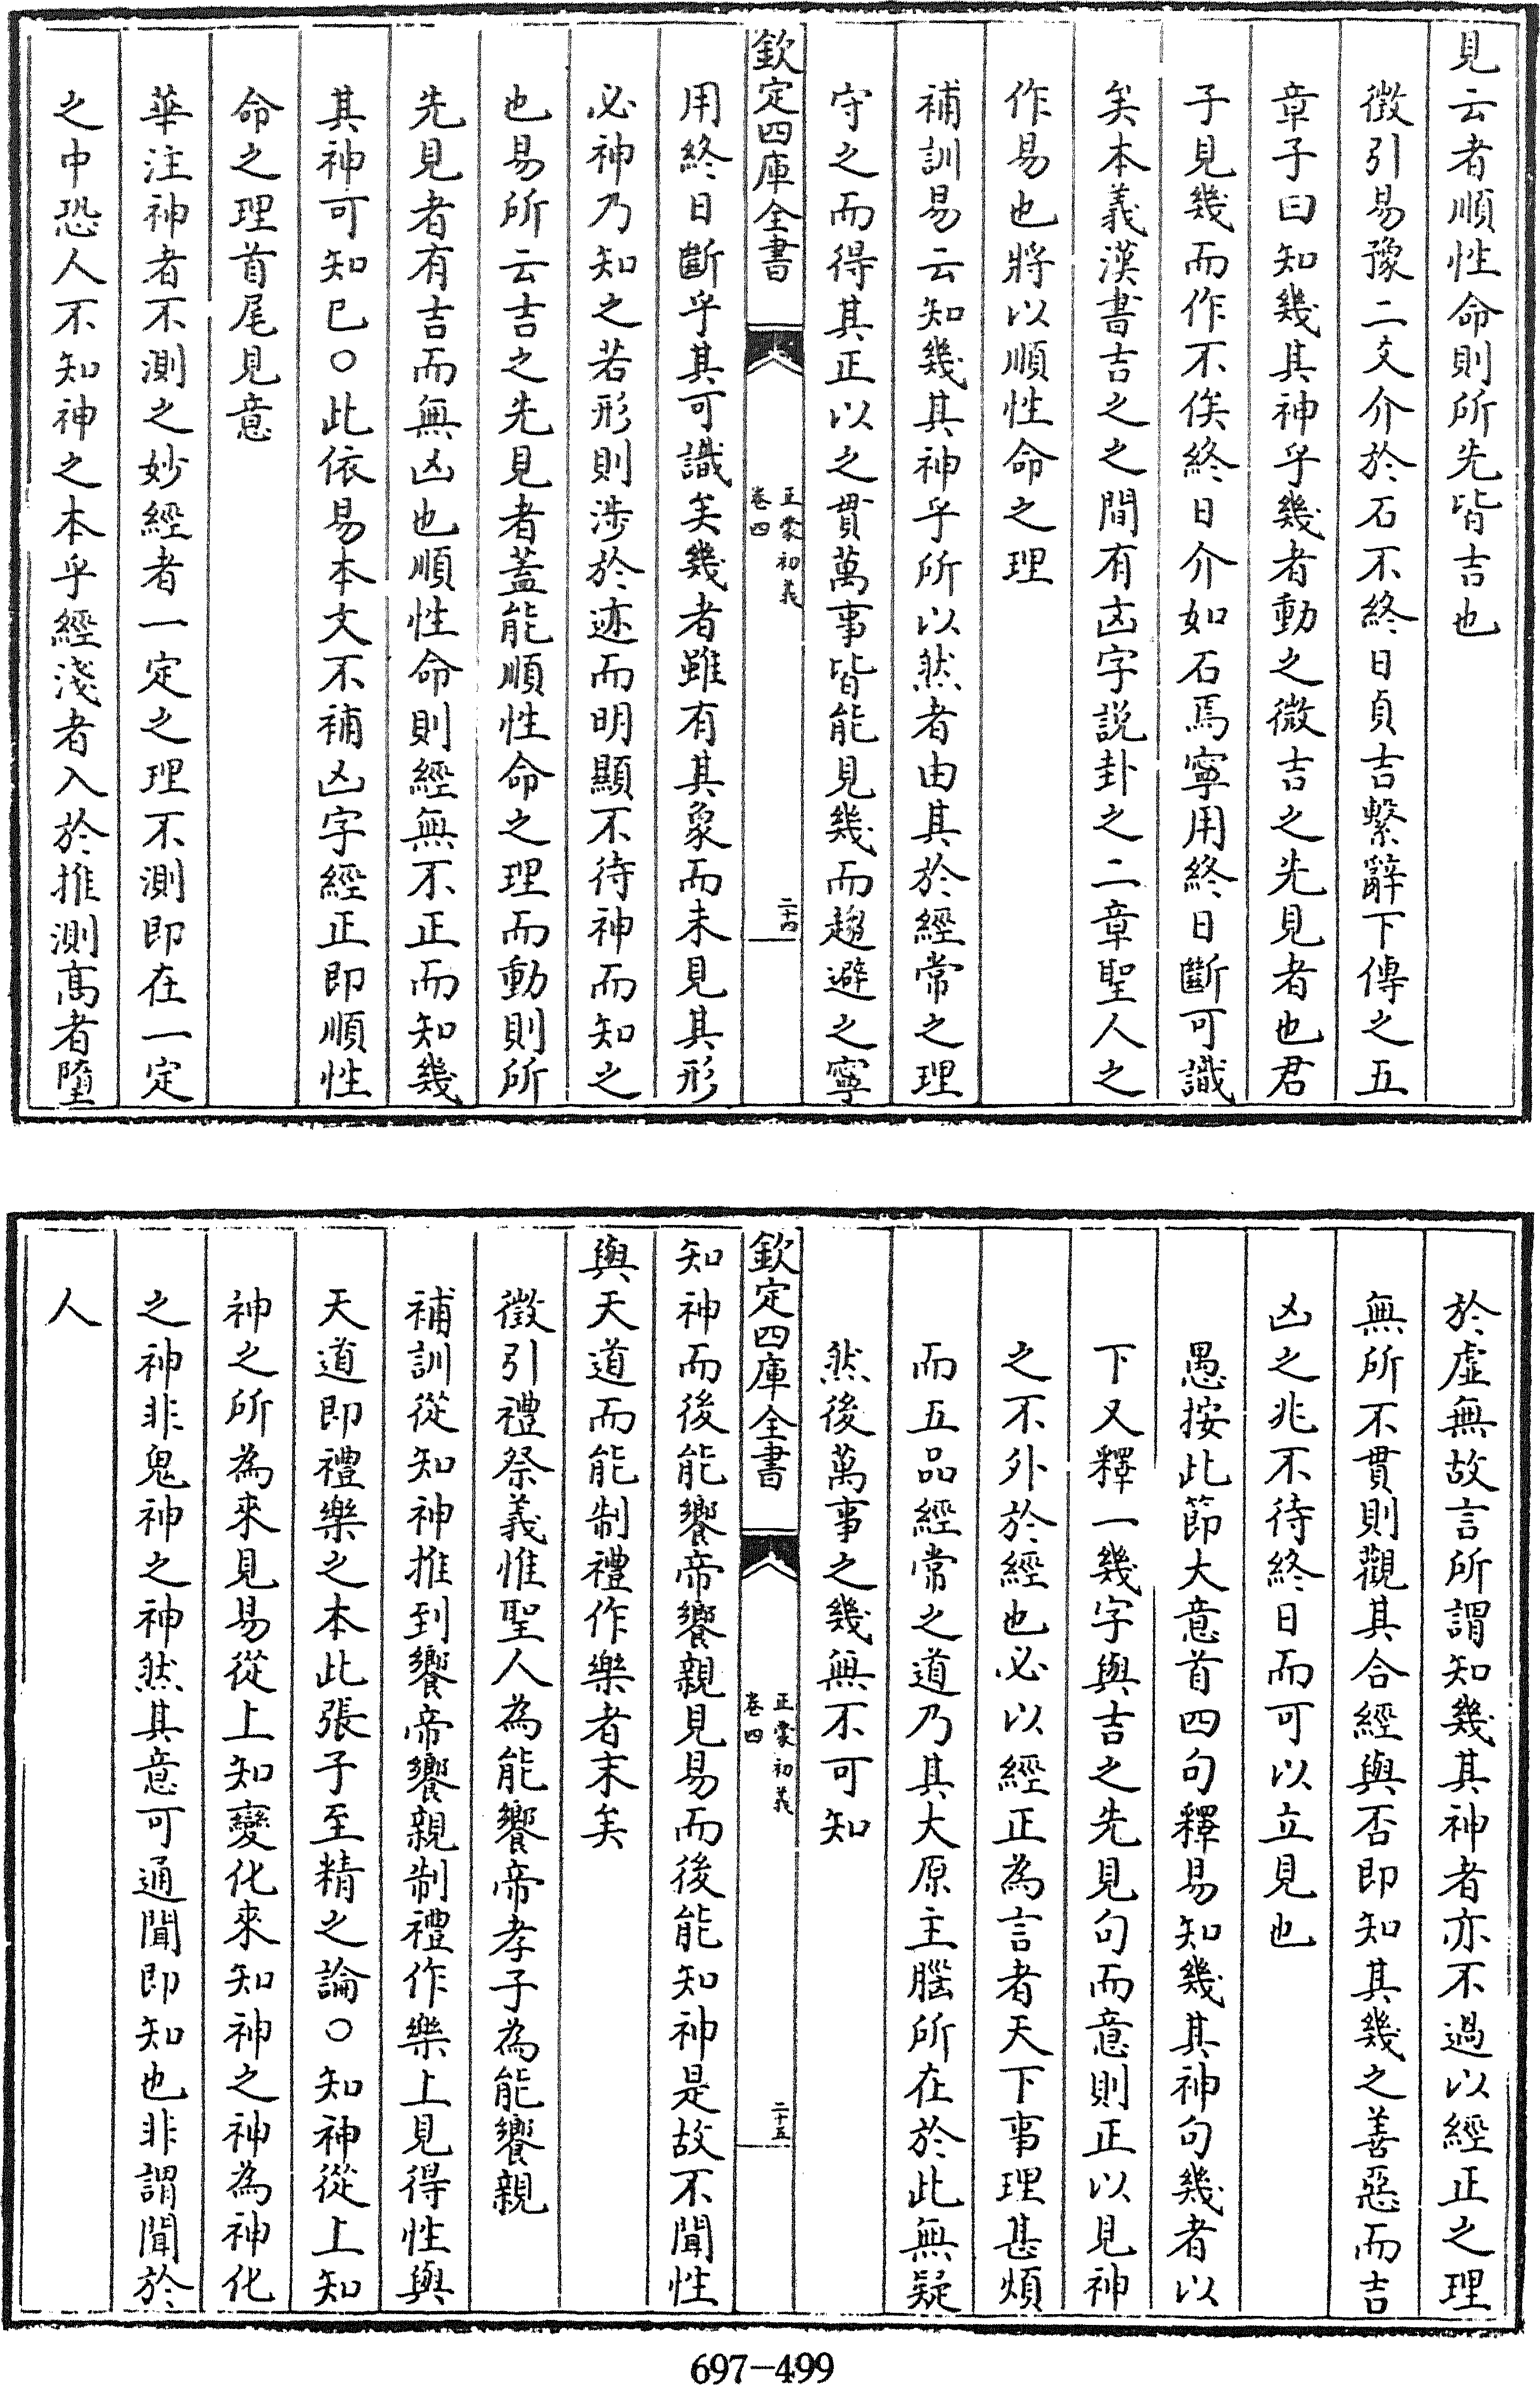 見云者順性命則所先皆吉也
徴引易豫二爻介於石不終日貞吉繫辭下傳之五
章子曰知幾其神乎幾者動之微吉之先見者也君
子見幾而作不俟終日介如石焉寧用終日斷可識
矣本義漢書吉之之間有凶字説卦之二章聖人之
作易也將以順性命之理
補訓易云知幾其神乎所以然者由其於經常之理
守之而得其正以之貫萬事皆能見幾而趨避之寧
欽定四庫全書
正蒙初義
卷四
二十四
用終日斷乎其可識矣幾者雖有其象而未見其形
必神乃知之若形則涉於迹而明顯不待神而知之
也易所云吉之先見者蓋能順性命之理而動則所
先見者有吉而無凶也順性命則經無不正而知幾
其神可知已○此依易本文不補凶字經正即順性
命之理首尾見意
華注神者不測之妙經者一定之理不測即在一定
之中恐人不知神之本乎經淺者入於推測高者墮
於虛無故言所謂知幾其神者亦不過以經正之理
無所不貫則觀其合經與否即知其幾之善惡而吉
凶之兆不待終日而可以立見也
愚按此節大意首四句釋易知幾其神句幾者以
下又釋一幾字與吉之先見句而意則正以見神
之不外於經也必以經正為言者天下事理甚煩
而五品經常之道乃其大原主腦所在於此無疑
然後萬事之幾無不可知
欽定四庫全書
正蒙初義
卷四
二十五
知神而後能饗帝饗親見易而後能知神是故不聞性
與天道而能制禮作樂者末矣
徴引禮祭義惟聖人為能饗帝孝子為能饗親
補訓從知神推到饗帝饗親制禮作樂上見得性與
天道即禮樂之本此張子至精之論○知神從上知
神之所為來見易從上知變化來知神之神為神化
之神非鬼神之神然其意可通聞即知也非謂聞於
人
697-499